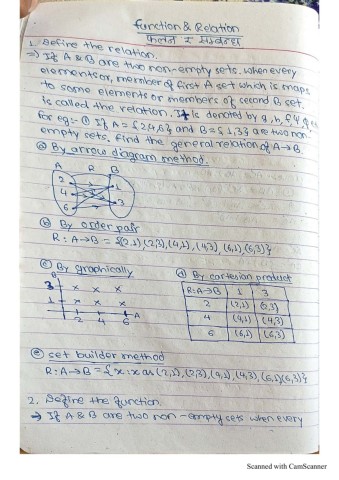 Function & Relation
फलन र सम्बन्ध
1. Define the relation.
⇒ If A & B are two non-empty sets. when every
elements or, member of first A set which is maps
to some elements or members of second B set.
is called the relation. It is denoted by g, h, f,
for eg:- ① If A = {2,4,6} and B = {1,3} are two non-
empty sets. find the general relation of A→B.
ⓐ By arrow diagram method.
A R B
2 1
4
6 3
ⓑ By order pair
R: A→B = {(2,1),(2,3),(4,1),(4,3),(6,1),(6,3)}
ⓒ By graphically
B
3 x x x
1 x x x
2 4 6 A
ⓓ By cartesian product
R:A→B 1 3
2 (2,1) (2,3)
4 (4,1) (4,3)
6 (6,1) (6,3)
ⓔ set builder method
R: A→B = {x:x as (2,1),(2,3),(4,1),(4,3),(6,1)(6,3)}
2. Define the function.
⇒ If A & B are two non-empty sets when every
Scanned with CamScanner